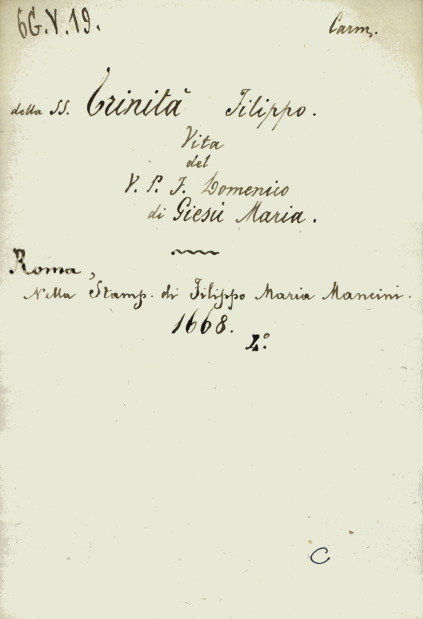 6G.V.19.
Carm.
della SS. Trinità Filippo.
Vita
del
V. P. F. Domenico
di Giesù Maria.
Roma,
Nella Stamp. di Filippo Maria Mancini.
1668.
4º.
C